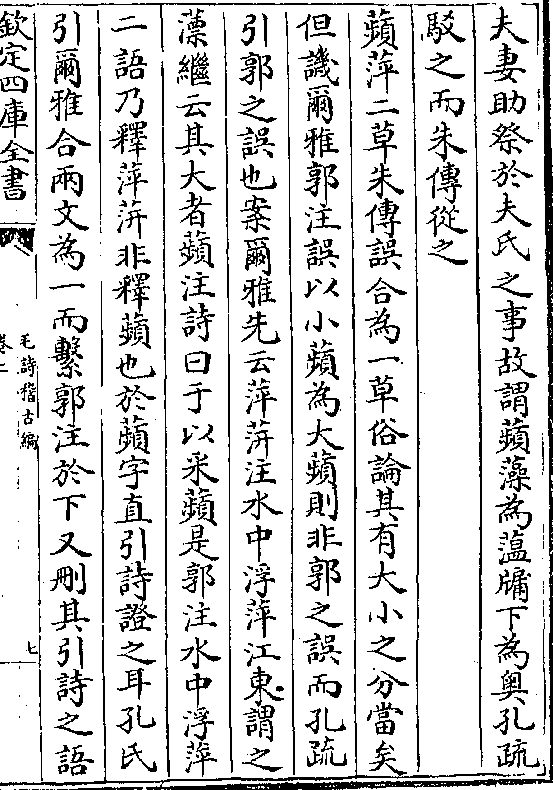 夫妻助祭於夫氏之事故謂蘋藻為薀牖下為奥孔疏
駁之而朱傳從之
蘋萍二草朱傳誤合為一草俗論其有大小之分當矣
但譏爾雅郭注誤以小蘋為大蘋則非郭之誤而孔疏
引郭之誤也案爾雅先云萍蓱注水中浮萍江東謂之
薸繼云其大者蘋注詩曰于以采蘋是郭注水中浮萍
二語乃釋萍蓱非釋蘋也於蘋字直引詩證之耳孔氏
引爾雅合兩文為一而繫郭注於下又刪其引詩之語
欽定四庫全書
毛詩稽古編
卷二
七